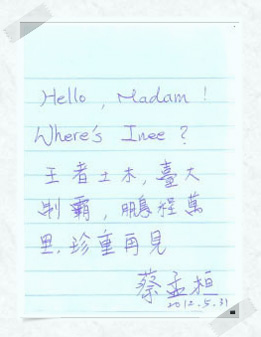 Hello, Madam!
Where's Inee?
王者土木,臺大
制霸,鵬程萬
里.珍重再見
蔡孟桓
2012.5.31